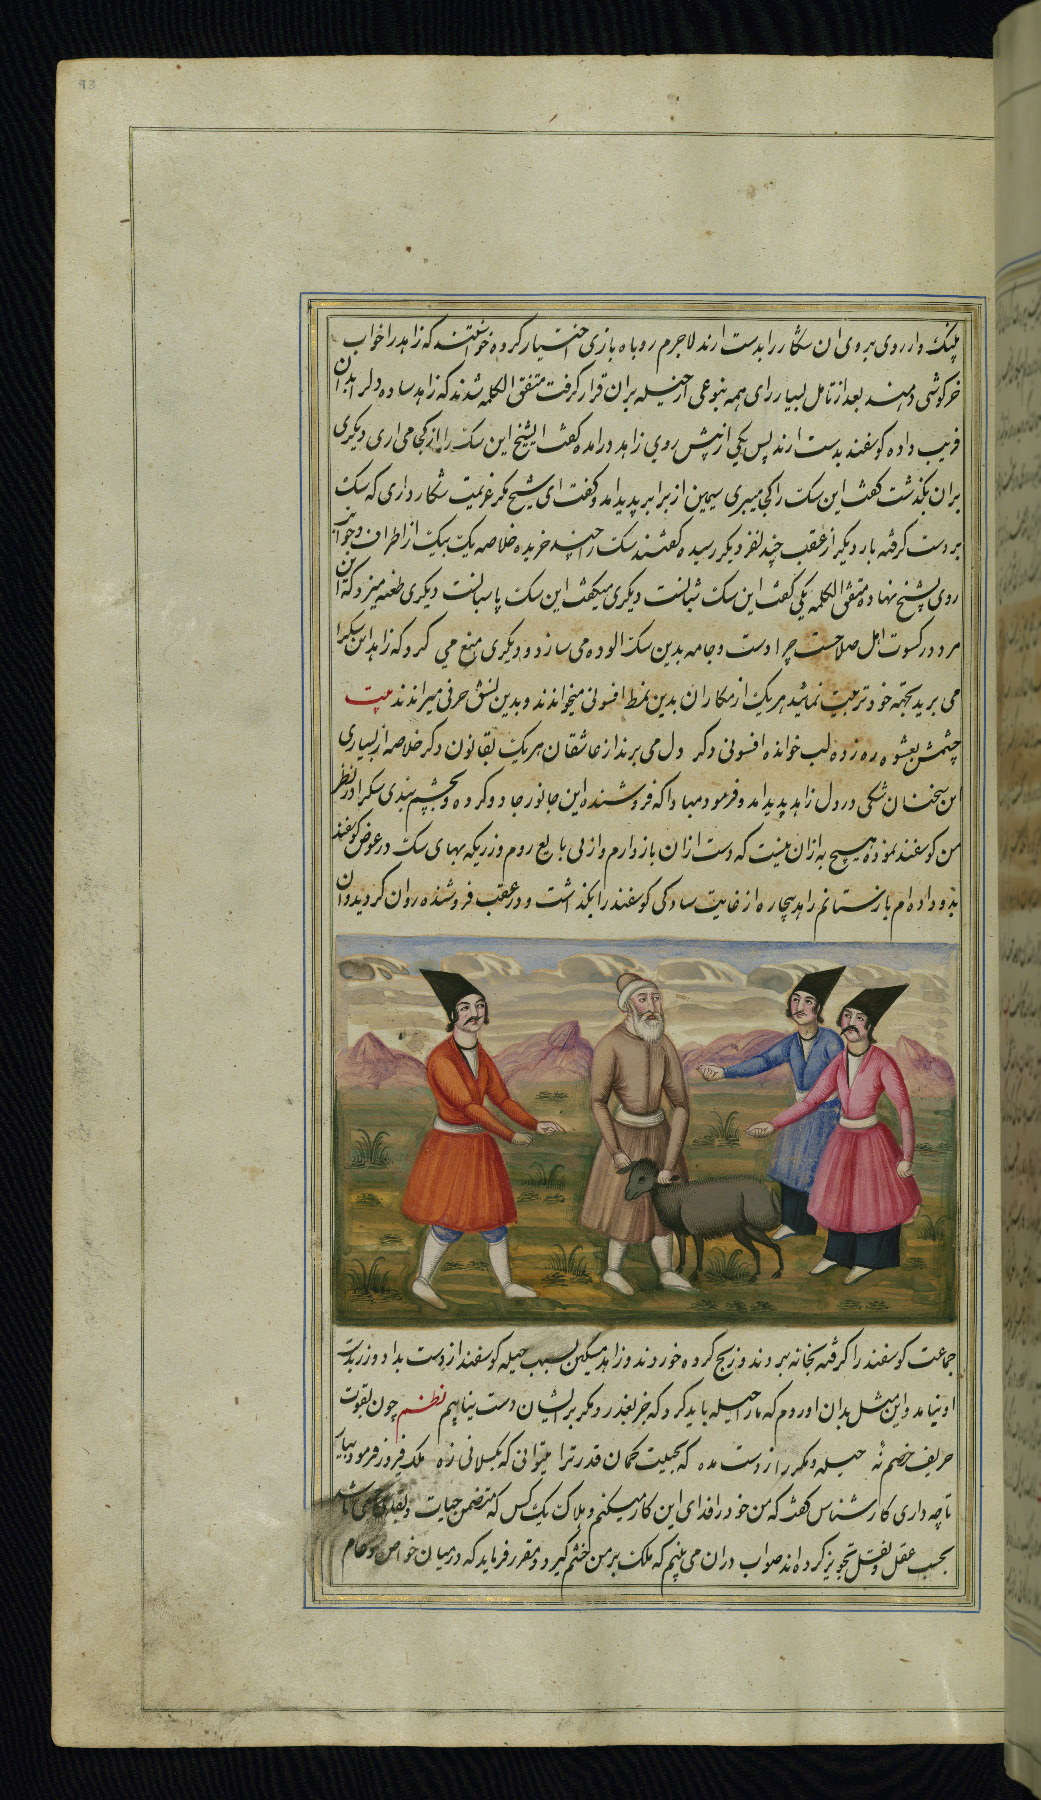 93
پلنک وار روی بروی ان شکار را بدست ارند لاجرم روباه بازی اختیار کرده خواستند که زاهد را خواب
خرکوشی دهند بعد از تامل بسیار رای همه بنوعی از حیله بران قرار کرفت متفق الکلمه شدند که زاهد ساده دل را بدان
فریب داده کوسفند بدست ارند پس یکی از پیش روی زاهد درامده کفت ایشیخ این سک را از کجا می اری دیکری
بران بکذشت کفت این سک را کجا میبری سیمین از برابر پدید امد و کفت ای شیخ مکر عزیمت شکار داری که سک
بر دست کرفته بار دیکر از عقب چند نفر دیکر رسیده کفتند سک را بچند خریده خلاصه یک بیک از اطراف و جوانب
روی بشیخ نهاده متفق الکلمه یکی کفت این سک شبانست دیکری میکفت این سک پاسبانست دیکری طعنه میزد که این
مرد در کسوت اهل صلاحست چرا دست و جامه بدین سک الوده می سازد و دیکری منع می کرد که زاهد این سکرا
می برید بجهة خود تربیت نمائید هر یک از مکاران بدین نمط افسونی میخواندند و بدین نسق حرفی میراندند بیت
چشمش بعشوه ره زده لب خوانده افسونی دکر دل می برند از عاشقان هر یک بقانون دکر خلاصه از بسیاری
این سخنان شکی در دل زاهد پدید امد و فرمود مبادا که فروشنده این جانور جادو کرده و بچشم بندی سکرا در نظر
من کوسفند نموده هیچ به ازان نیست که دست ازان باز دارم و از پی بایع روم و زریکه بهای سک در عوض کوسفند
بدو داده ام باز ستانم زاهد بیچاره از غایت سادکی کوسفند را بکذاشت و در عقب فروشنده روان کردید وان
جماعت کوسفند را کرفته بخانه بردند و زبح کرده خوردند و زاهد مسکین بسبب حیله کوسفند از دست بداد و زر بدست
او نیامد و این مثل بدان اوردم که ما را حیله باید کرد که جز بغدر و مکر بر ایشان دست نیابیم نظم چون بقوت
حریف خصم نۀ حیله و مکر را ز دست مده که بحیلت کمان قدر ترا میتوانی که بکسلانی زه ملک فیروز فرمود بیار
تا چه داری کارشناس کفت که من خود را فدای این کار میکنم و هلاک یک کس که متضمن حیات و بقای جمعی باشد
بحسب عقل و نقل تجویز کرده اند صواب دران می بینم که ملک بر من خشم کیرد و مقرر فرماید که در میان خواص و عام